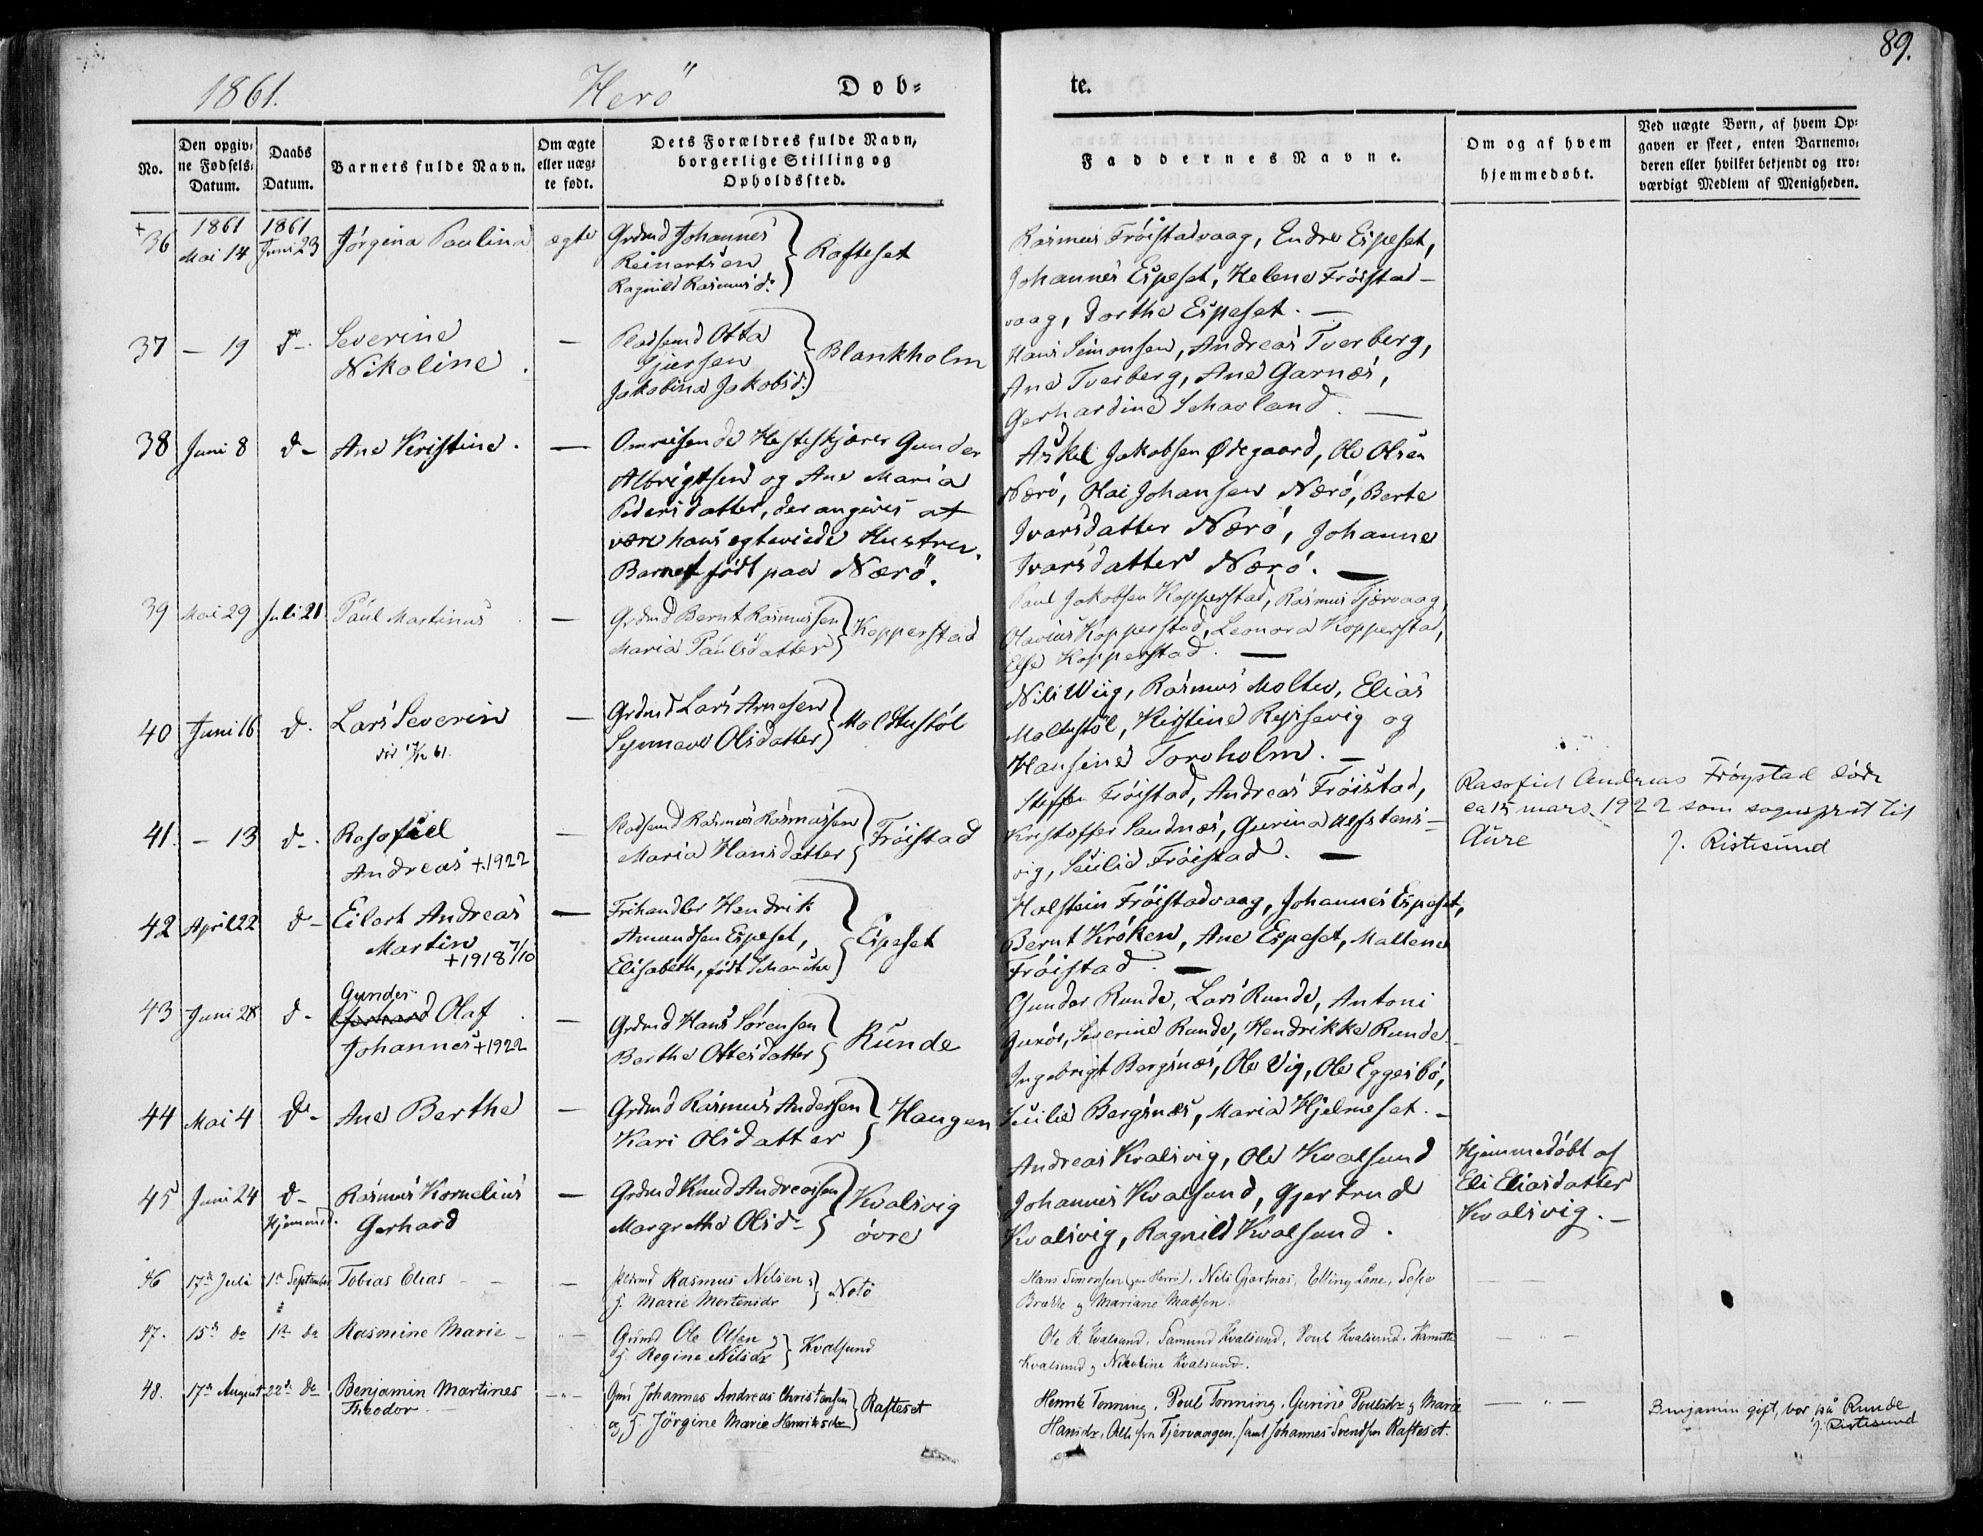 89.
1861. Herö Døb-
te.
No.
Den opgiv-
ne Fødsels-
Datum.
Daabs
Datum.
Barnets fulde Navn.
Om ægte
eller uæg-
te født.
Dets Forældres fulde Navn,
borgerlige Stilling og
Opholdssted.
Faddernes Navne.
Om og af hvem
hjemmedøbt.
Ved uægte Børn, af hvem Op-
gaven er skeet, enten Barnemo-
deren eller hvilket bekjendt og tro-
værdigt Medlem af Menigheden.
+
36 1861 Mai 14 1861 Juni 23 Jørgina Paulina ægte Grdmd Johannes
Reinertsen
Ragnild Rasmusd: Rafteset
Rasmus Frøistadvaag, Endre Espeset,
Johannes Espeset, Helene Frøistad-
vaag, Dorthe Espeset. —
37 — 19 do-. Severine
Nikoline. — Pladsemd Otta
Jakobina Jakobsd. Blankholm
Hans Simonsen, Andreas Tverberg,
Ane Tverberg, Ane Garnæs,
Gerhardine Schavland. —
38 Juni 8 do- Ane Kristine. — Omreisende Hesteskjærer Gunder
Albrigtsen og Ane Maria
Pedersdatter, der angives at
være hans egteviede Hustru.
Barnet født paa Nærö.
Askel Jakobsen Ødegaard, Ole Olsen
Nærö, Olai Johansen Nærö, Berte
Ivarsdatter Nærö, Johanne
Ivarsdatter Nærö. —
39 Mai 29 Juli 21 Paul Martinus — Grdmd Bernt Rasmussen
Maria Paulsdatter Kopperstad
Paul Jakobsen Kopperstad, Rasmus Tjærvaag,
Olavius Kopperstad, Leonora Kopperstad,
Else Kopperstad. —
40 Juni 16 do. Lars Severin
— Grdmd Lars Arnesen
Synnave Olsdatter Moldtustøl
Nils Wiig, Rasmus Moltu, Elias
Moltustøl, Kirstine Røsevig og
Hansine Torvholm. —
41. — 13 do-. Rasofiel
Andreas +.1922 — Pladsemd Rasmus Rasmussen
Maria Hansdatter Frøistad
Steffen Frøistad, Andreas Frøistad,
Kristoffer Sandnæs, Gurina Ulfstens-
vig, Sesilie Frøistad. —
Rasofiel Andreas Frøystad døde
ca 15 mars 1922 som sogneprest til
Aure J. Ristesund
42 April 22 do- Eilert Andreas
Martin
+1918 7/10 — Frihandler Hendrik
Amundsen Espeset,
Elisabeth, født Schanche Espeset
Halstein Frøistadvaag, Johannes Espeset,
Bernt Krøken, Ane Espeset, Maltene
Frøistad. —
43 Juni 28 do- Gunder
Gerhard Olaf
Johannes +1922 — Grdmd Hans Sørensen
Berthe Ottesdatter Runde
Gunder Runde, Lars Runde, Antoni
Severine Runde, Hendrikke Runde.
44 Mai 4 do- Ane Berthe — Grdmd Rasmus Andersen
Kari Olsdatter Haugen
Ingebrigt Bergsnæs, Ole Vig, Ole Eggesbø,
Sesilie Bergsnæs, Maria Hjelmeset. —
45 Juni 24 do-
Hjemmed. Rasmus Kornelius
Gerhard — Grdmd Knud Andreassen
Margrethe Olsdr- Kvalsvig
øvre
Andreas Kvalsvig, Ole Kvalsund
Johannes Kvalsund, Gjertrud
Kvalsvig, Ragnild Kvalsund.
Hjemmedøbt af
Eli Eliasdatter
Kvalsvig. —
46 17de Juli 1ste September Tobias Elias — Rasmus Nilsen
h. Marie Mortensdr Notö
Hans Simonsen (paa Herrö), Nils Gjertnæs, Elling Lene, Sofie
Brække og Mariane Madsen.
47. 15de do 1ste do Rasmine Marie — Grdmd Ole Olsen og
h. Regine Nilsdr Kvalsund
Ole R. Kvalsund, Samund Kvalsund, Poul Kvalsund,
Kvalsund og Nikoline Kvalsund.
48. 17de August 22de do Benjamin Martines
Theodor — Gmd Johannes Andreas Christensen
og h. Jörgine Marie Henriksdr Rafteset
Henrik Tonning, Poul Tonning, Gurine Poulsdr og Marie
Hansdr. Tjervaagen, samt Johannes Svendsen Rafteset.
Benjamin gift, bor på Runde
J. Ristesund